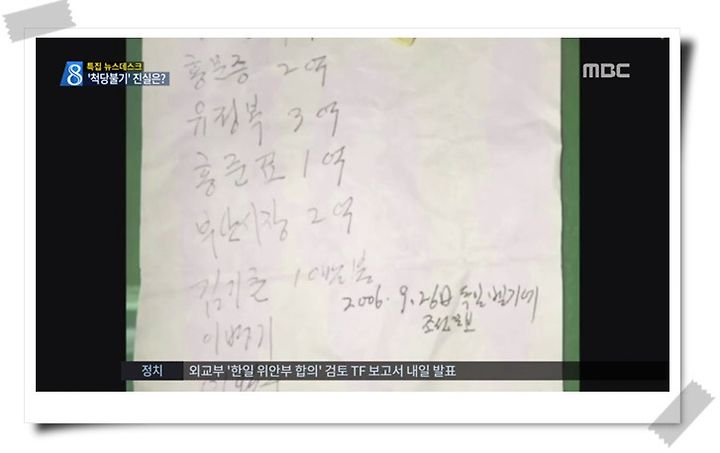 8 특집 뉴스데스크
'척당불기' 진실은?
MBC
홍문종 2억
유정복 3억
홍준표 1억
부산시장 2억
김기춘 10만불
2006. 9. 26日 독일 벨기에
조선일보
이병기
정치 외교부 '한일 위안부 합의' 검토 TF 보고서 내일 발표